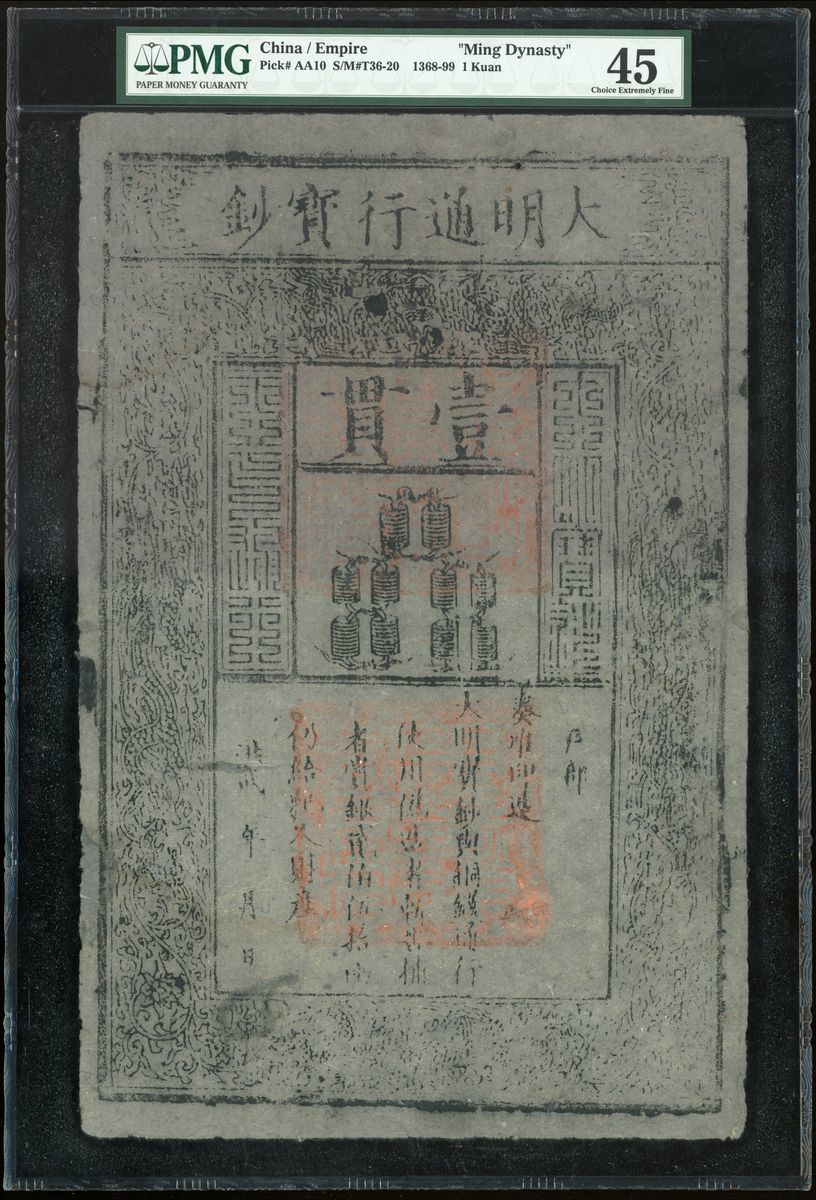 PMG
PAPER MONEY GUARANTY
China / Empire "Ming Dynasty"
Pick# AA10 S/M#T36-20 1368-99 1 Kuan
45
Choice Extremely Fine
大明通行寶鈔
壹貫
戶部
奏准印造
大明寶鈔與銅錢通行
使用偽造者斬告捕
者賞銀貳佰伍拾兩
仍給犯人財產
洪武 年 月 日